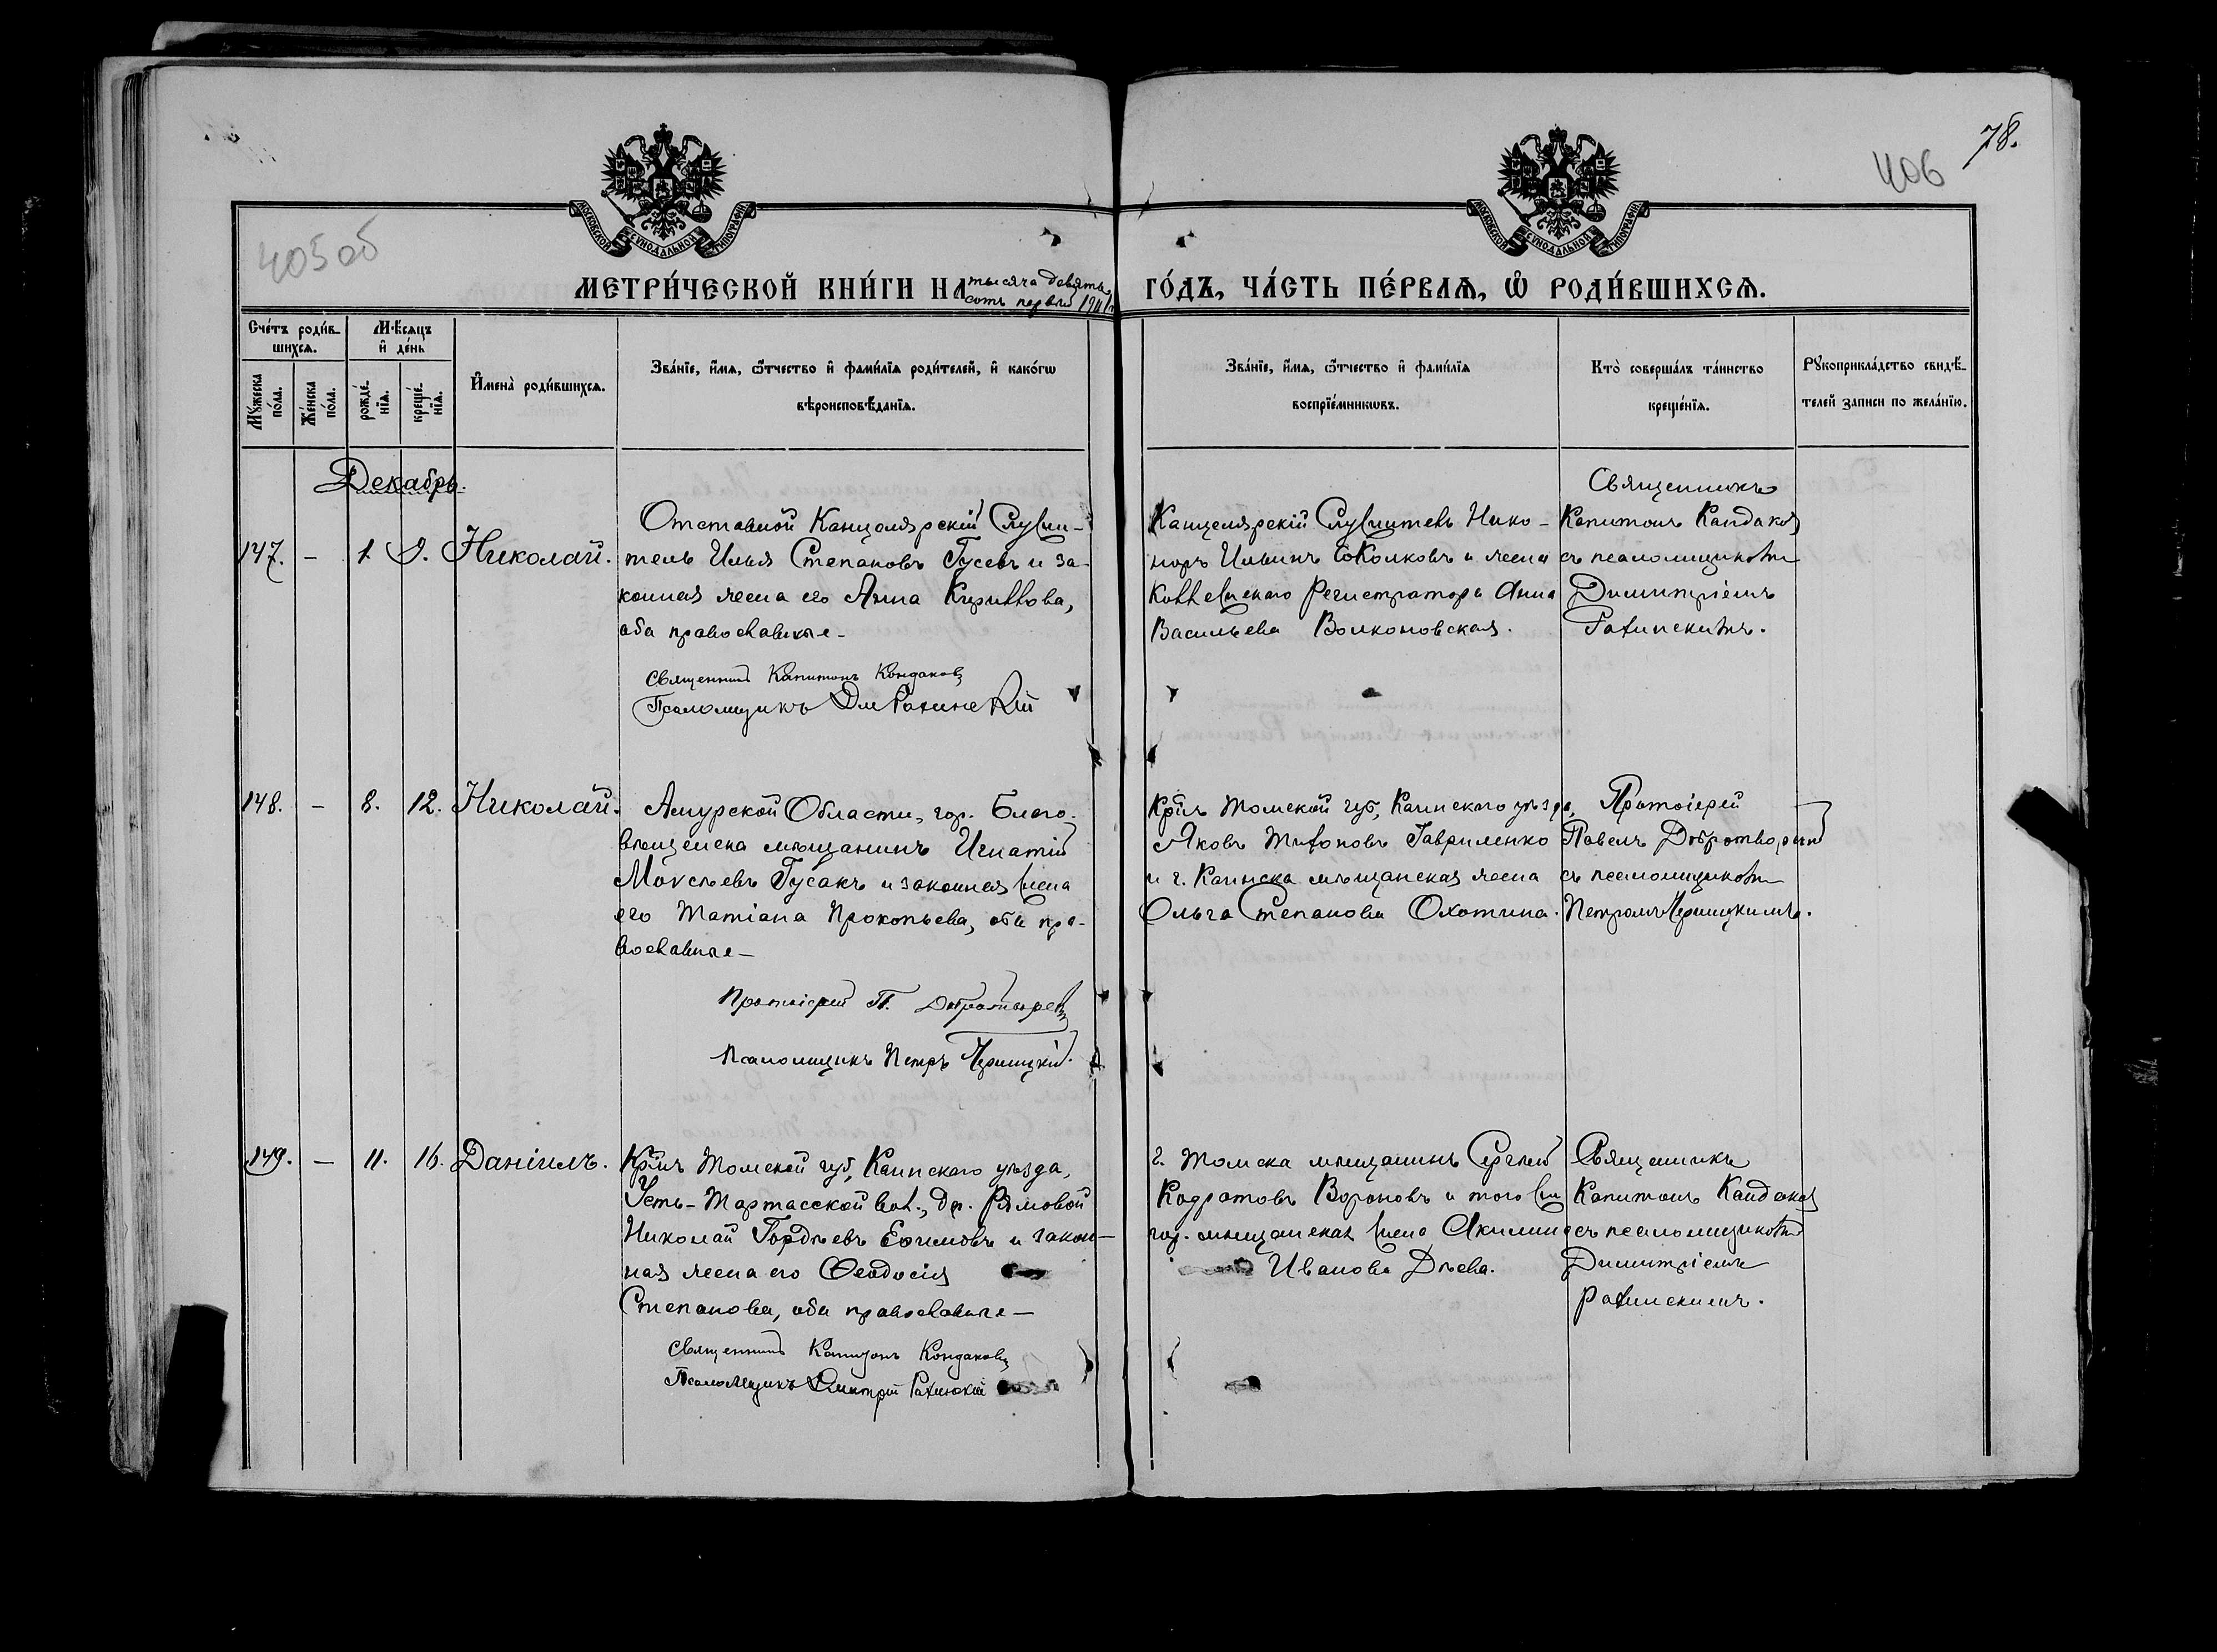 78.
406
405об
МОСКОВСКОЙ СУНОДАЛЬНОЙ ТИПОГРАФІИ
МОСКОВСКОЙ СУНОДАЛЬНОЙ ТИПОГРАФІИ
МЕТРИ́ЧЕСКОЙ КНИ́ГИ НА тысяча девять
сотъ первый
ГО́ДЪ, ЧА́СТЬ ПЕ́РВАѦ, Ѽ РОДИ́ВШИХСѦ.
Сче́тъ роди́в-
шихсѧ.
Мѣ́сѧцъ
и҆ де́нь
Му́жеска по́ла.
Же́нска по́ла.
рожде́-нїѧ.
креще́-нїѧ.
И҆мена̀ роди́вшихсѧ.
Зва́нїе, и҆́мѧ, ѻ҆́тчество и҆ фами́лїѧ роди́телей, и҆ како́гѡ
вѣроисповѣ́данїѧ.
Зва́нїе, и҆́мѧ, ѻ҆́тчество и҆ фами́лїѧ
воспрїе́мникѡвъ.
Кто̀ соверша́лъ та́инство
креще́нїѧ.
Рꙋкоприкла́дство свидѣ́-
телей записи по жела́нїю.
Декабрь.
147. – 1. 9. Николай.
Отставной Канцелярскій Служи-
тель Илья Степановъ Гусевъ и за-
конная жена его Анна Кириллова,
оба православные –
Священникъ Капитонъ Кондаковъ
Псаломщикъ Дм Рахинскій
Канцелярскій Служитель Нико-
норъ Ильинъ Соколковъ и жена
Коллежскаго Регистратора Анна
Васильева Волконовская.
Священникъ
Капитонъ Кандаковъ
съ псаломщикомъ
Димитріемъ
Рахинскимъ.
148. – 8. 12. Николай.
Амурской Области, гор. Благо-
вѣщенска мѣщанинъ Игнатій
Моисѣевъ Гусакъ и законная жена
его Татіана Прокопьева, оба пра-
вославные –
Протоіерей П. Добротворскій
Псаломщикъ Петръ
Кр̃нъ Томской губ, Каинскаго уѣзда,
Яковъ Гавриленко
и г. Каинска мѣщанская жена
Ольга Степанова Охотина.
Протоіерей
Павелъ Добротворскій
съ псаломщикомъ
Петромъ
149. – 11. 16. Даніилъ.
Кр̃нъ Томской губ, Каинскаго уѣзда,
Усть-Тартасской вол., дер. Рямовой
Николай Гордѣевъ Ефимовъ и закон-
ная жена его Ѳеодосія
Степанова, оба православные –
Священникъ Капитонъ Кондаковъ
Псаломщикъ Димитрій Рахинскій
г. Томска мѣщанинъ Сергѣй
Кодратовъ Вороновъ и того же
гор. мѣщанская жена Акилина
Иванова Дѣева.
Священникъ
Капитонъ Кандаковъ
съ псаломщикомъ
Димитріемъ
Рахинскимъ.